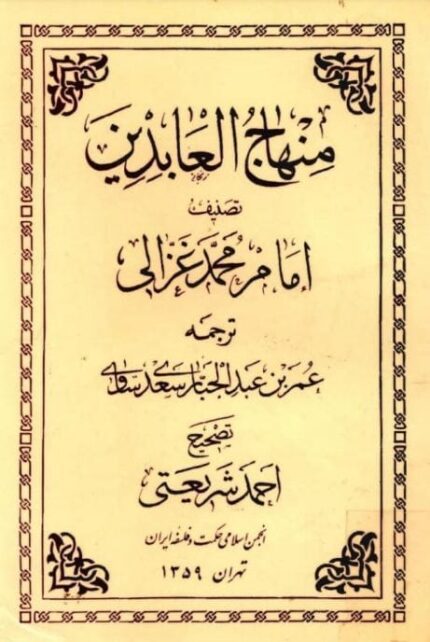 منهاجُ العابِدِين
تصنیف
امام محمّد غزّالی
ترجمه
عمر بن عبدالجبار سعدی ساوی
تصحیح
احمد شریعتی
انجمن اسلامی حکمت و فلسفه ایران
تهران ۱۳۵۹